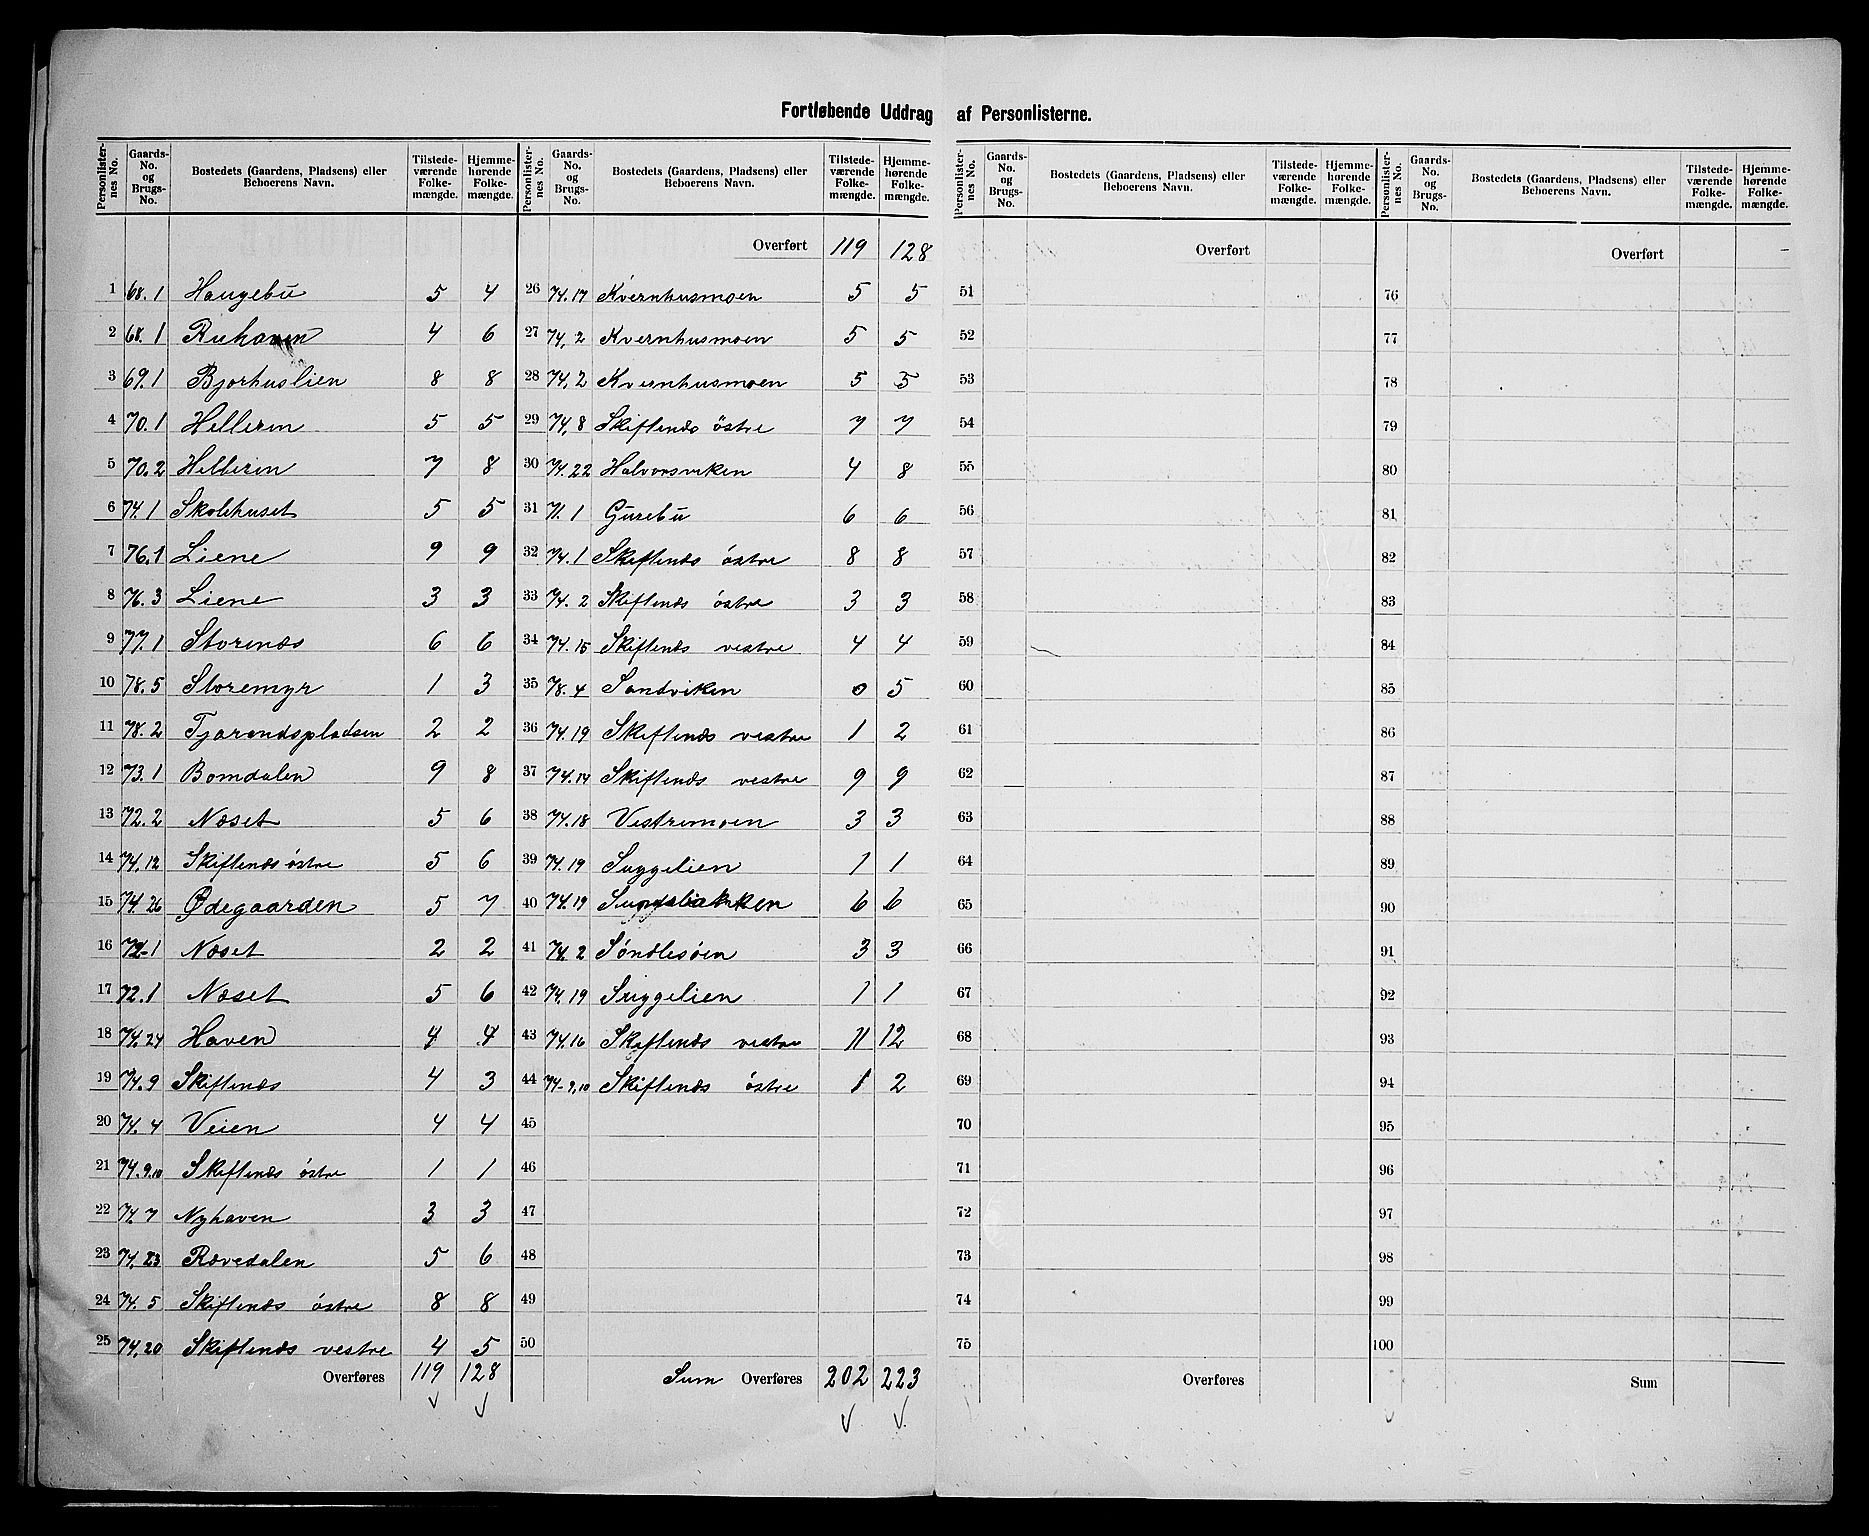 Fortløbende Uddrag af Personlisterne.
Personlisternes No. Gaards-No. og Brugs-No. Bostedets (Gaardens, Pladsens) eller Beboerens Navn. Tilstedeværende Folkemængde. Hjemmehørende Folkemængde.
1 68.1 Haugebu 5 4
2 68.1 Ruhaven 4 6
3 69.1 Bjorhuslien 8 8
4 70.1 Helleren 5 5
5 70.2 Helleren 7 8
6 74.1 Skolehuset 5 5
7 76.1 Liene 9 9
8 76.3 Liene 3 3
9 77.1 Storenæs 6 6
10 78.5 Storemyr 1 3
11 78.2 Tjorendspladsen 2 2
12 73.1 Bomdalen 9 8
13 72.2 Næset 5 6
14 74.12 Skiftenæs østre 5 6
15 74.26 Ødegaarden 5 7
16 72.1 Næset 2 2
17 72.1 Næset 5 6
18 74.24 Haven 4 4
19 74.9 Skiftenæs 4 3
20 74.4 Veien 4 4
21 74.9.10 Skiftenæs østre 1 1
22 74.7 Nyhaven 3 3
23 74.23 Rævedalen 5 6
24 74.5 Skiftenæs østre 8 8
25 74.20 Skiftenæs vestre 4 5
Overføres 119 128
Personlisternes No. Gaards-No. og Brugs-No. Bostedets (Gaardens, Pladsens) eller Beboerens Navn. Tilstedeværende Folkemængde. Hjemmehørende Folkemængde.
Overført 119 128
26 74.17 Kvernhusmoen 5 5
27 74.2 Kvernhusmoen 5 5
28 74.2 Kvernhusmoen 5 5
29 74.8 Skiftenæs østre 7 7
30 74.22 Halvorsviken 4 8
31 71.1 Gurebu 6 6
32 74.1 Skiftenæs østre 8 8
33 74.2 Skiftenæs østre 3 3
34 74.15 Skiftenæs vestre 4 4
35 78.4 Sandviken 0 5
36 74.19 Skiftenæs vestre 1 2
37 74.14 Skiftenæs vestre 9 9
38 74.18 Vestremoen 3 3
39 74.19 Suggelien 1 1
40 74.19 6 6
41 74.2 Søndlesøen 3 3
42 74.19 Suggelien 1 1
43 74.16 Skiftenæs vestre 11 12
44 74-9,10 Skiftenæs østre 1 2
45
46
47
48
49
50
Sum Overføres 202 223
Personlisternes No. Gaards-No. og Brugs-No. Bostedets (Gaardens, Pladsens) eller Beboerens Navn. Tilstedeværende Folkemængde. Hjemmehørende Folkemængde.
Overført
51
52
53
54
55
56
57
58
59
60
61
62
63
64
65
66
67
68
69
70
71
72
73
74
75
Overføres
Personlisternes No. Gaards-No. og Brugs-No. Bostedets (Gaardens, Pladsens) eller Beboerens Navn. Tilstedeværende Folkemængde. Hjemmehørende Folkemængde.
Overført
76
77
78
79
80
81
82
83
84
85
86
87
88
89
90
91
92
93
94
95
96
97
98
99
100
Sum